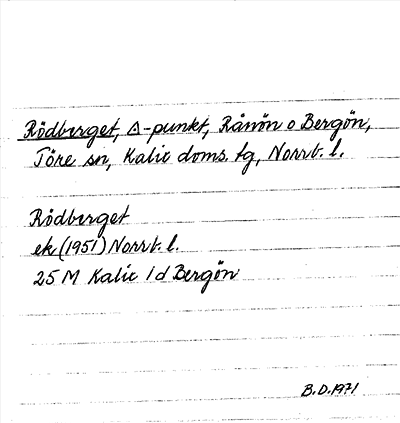 Rödberget, △-punkt, Rånön o Bergön,
Töre sn, Kalix doms. tg, Norrb. l.
Rödberget
ek (1951) Norrb. l.
25 M Kalix 1 d Bergön
B.D. 1971